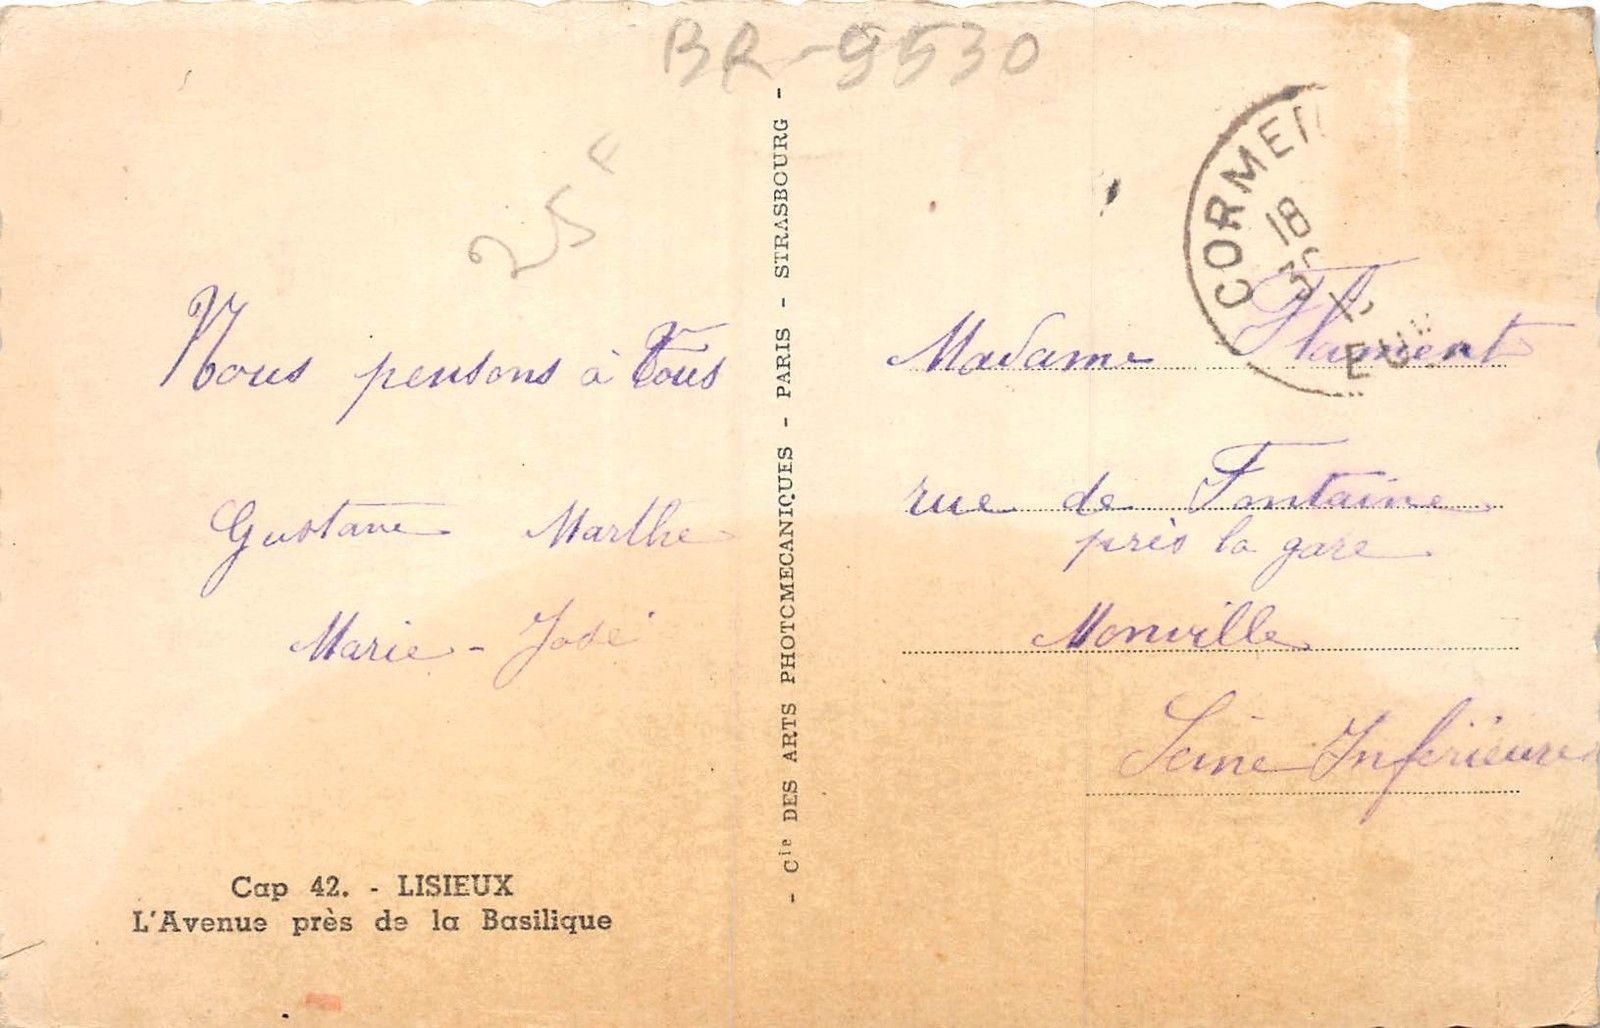 BR-9530
25 F
Nous pensons à Tous
Gustave Marthe
Marie - José
Cap 42. - LISIEUX
L'Avenue près de la Basilique
- Cie DES ARTS PHOTOMECANIQUES - PARIS - STRASBOURG -
CORMEI
18
EU
Madame Flament
rue de Fontaine
près la gare
Monville
Seine Inférieure